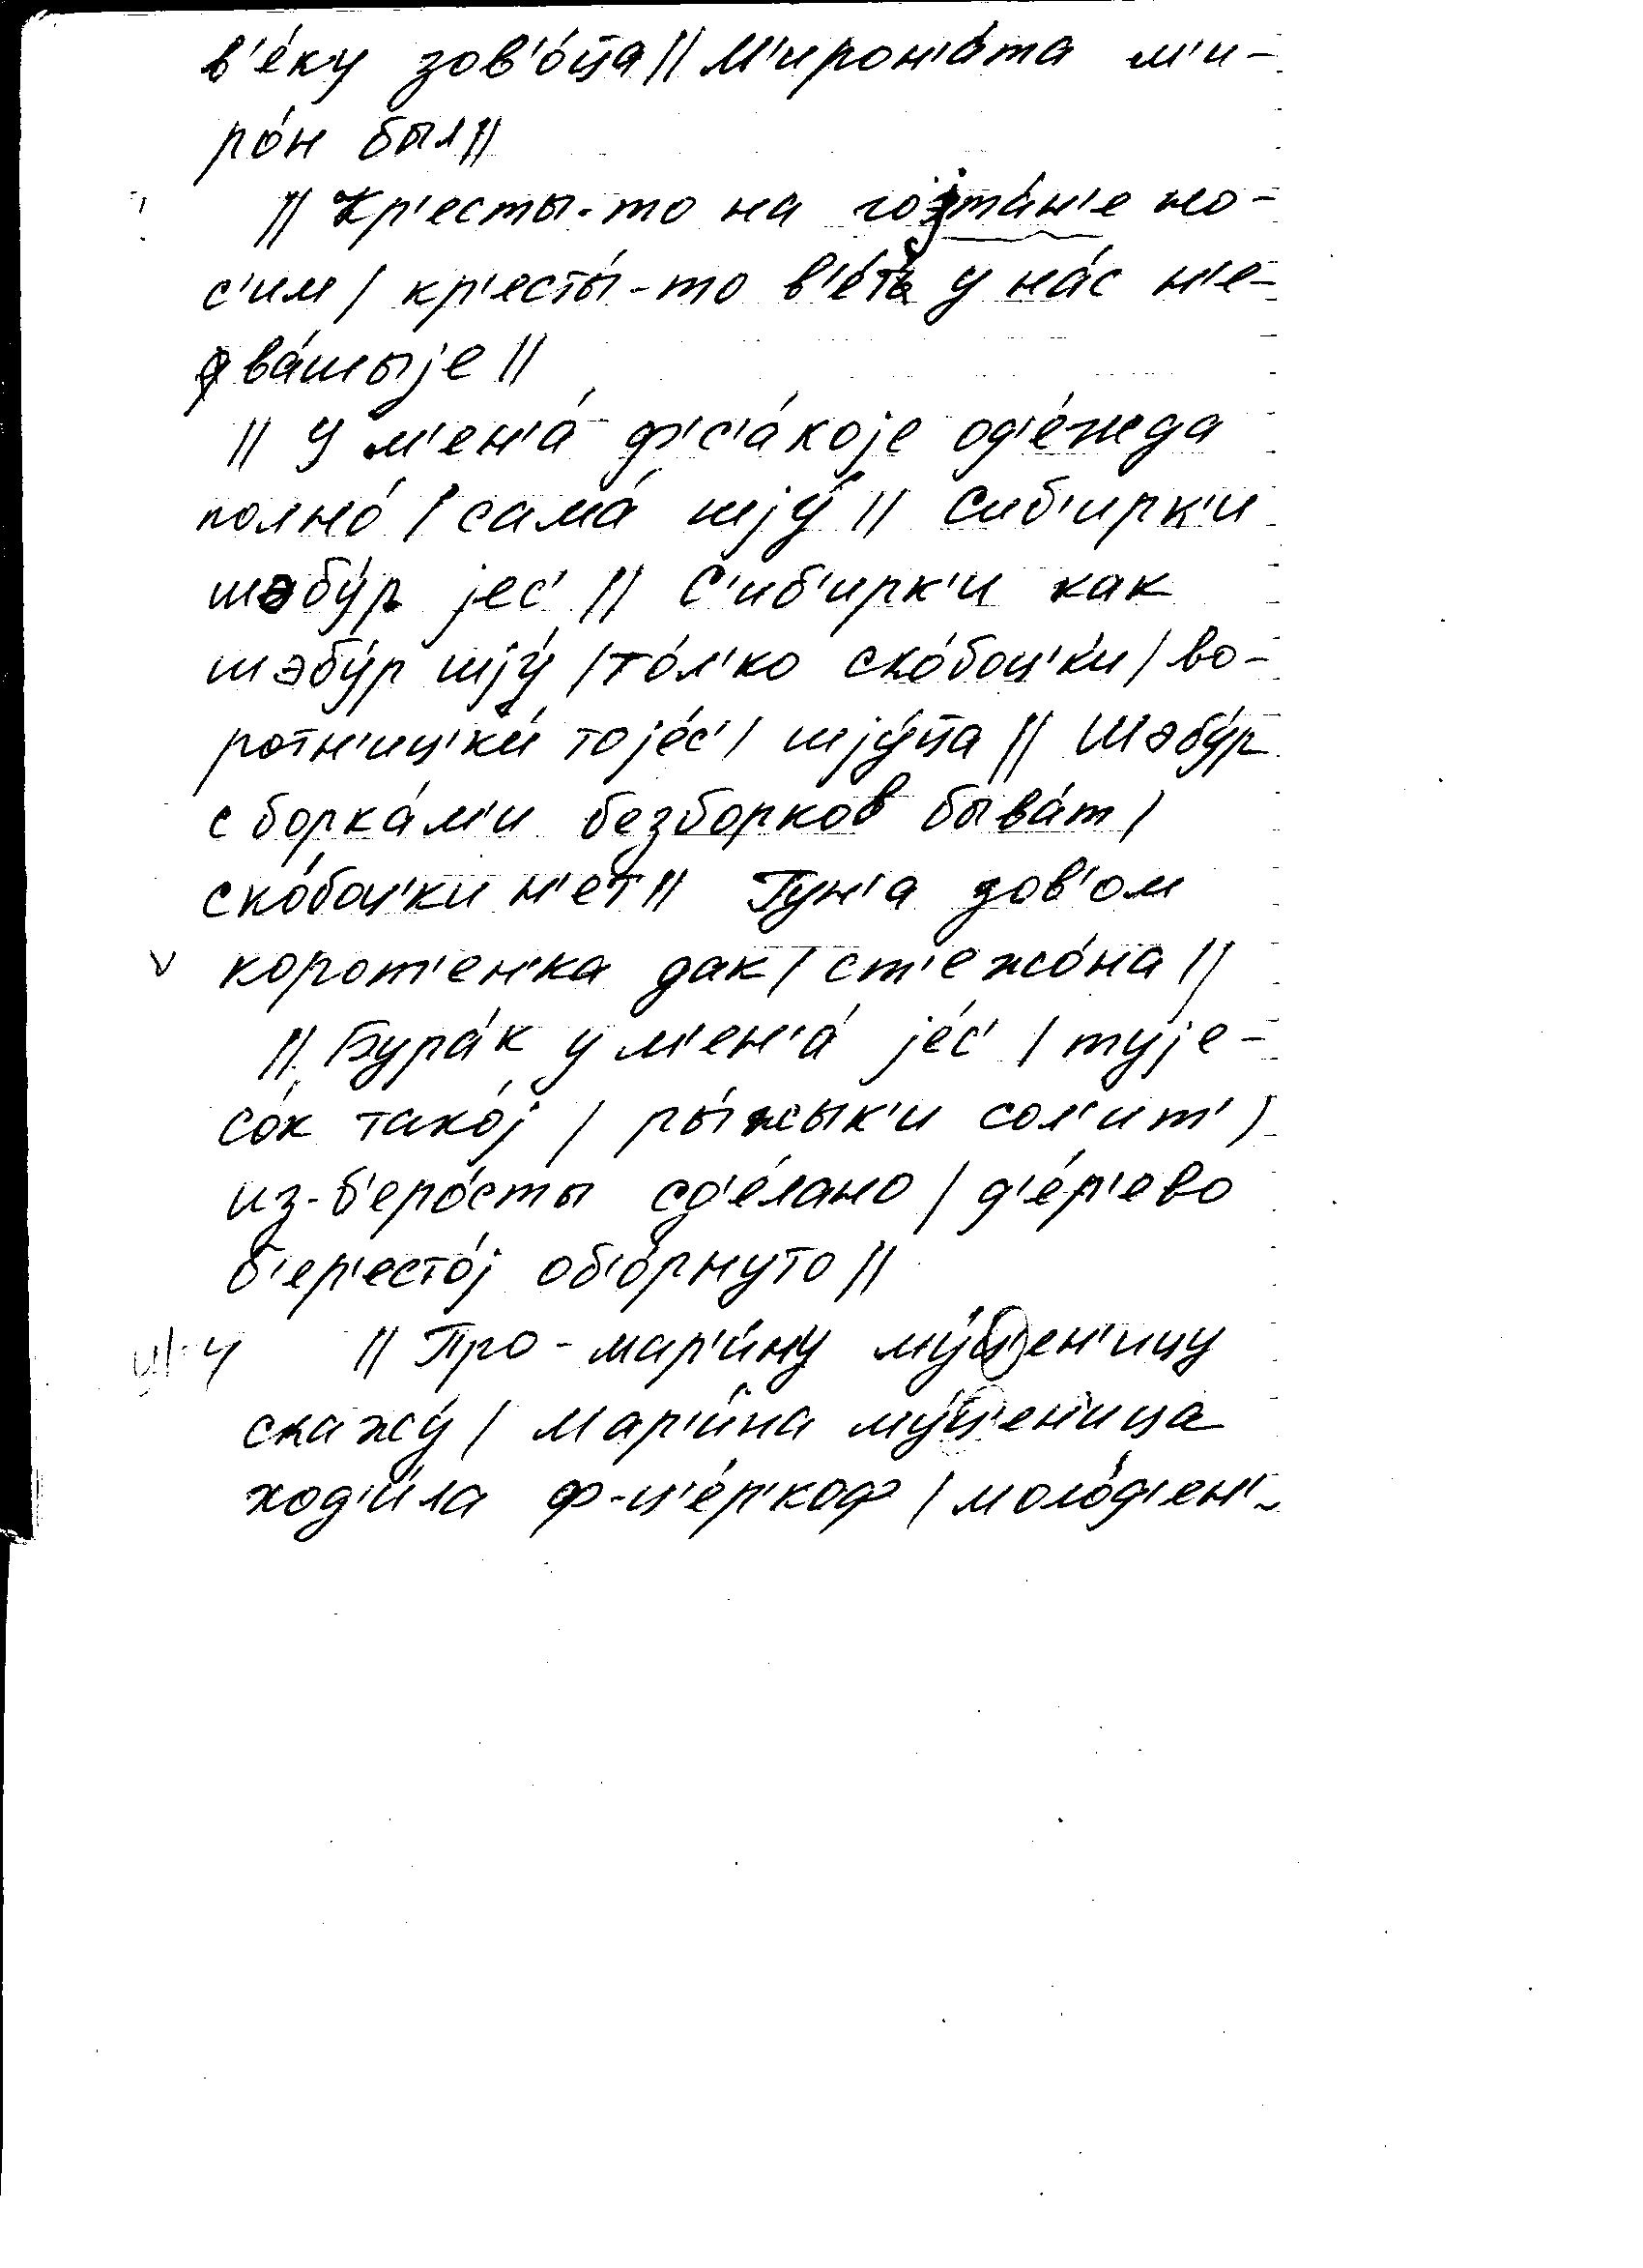 в'е́ку зов'о́ца || М'ирон'а́та м'и-
ро́н был ||
|| Кр'есты-то на гојта́н'е но-
с'им / кр'есты́-то в'е́т' у на́с н'е-
ва́шыје ||
|| У м'ен'а́ ф'с'а́које од'е́жда
полно́ / сама́ шју́ || Сиб'ирк'и
шабу́р јес' || С'иб'ирк'и как
шабу́р шју́ / то́л'ко ско́боц'к'и / во-
ротн'иц'к'и́ тоје́с' / шју́ца || Шабу́р
с борка́м'и безборков быва́т /
ско́боц'ки н'ет || Гун'а зов'ом
корот'ен'ка дак / ст'ежо́на ||
|| Бура́к у м'ен'а́ је́с' / тује-
со́к тако́ј / ры́жык'и сол'ит' /
из-б'еро́сты сд'е́лано / д'е́р'ево
б'ер'есто́ј об'о́рнуто ||
ц'-ч || Про-мар'и́ну му́ц'ен'ицу
скажу́ / Мар'и́на му́ц'ен'ица
ход'и́ла ф-ц'е́р'коф / моло́д'ен'-